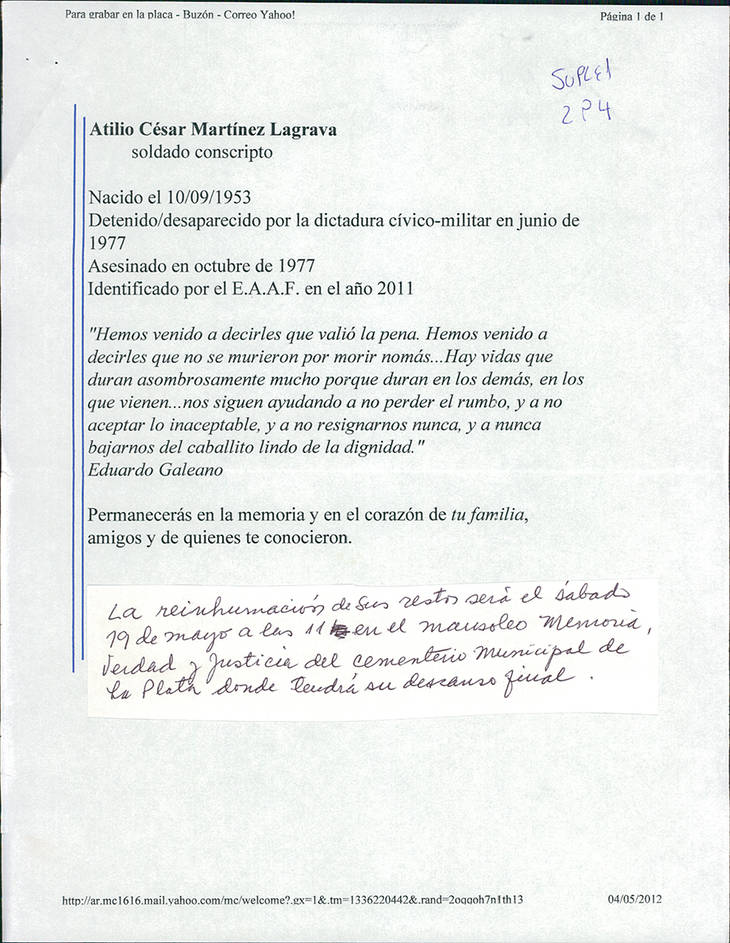 Para grabar en la placa - Buzón - Correo Yahoo!
Página 1 de 1
SUPLE1
2 P4
Atilio César Martínez Lagrava
soldado conscripto
Nacido el 10/09/1953
Detenido/desaparecido por la dictadura cívico-militar en junio de
1977
Asesinado en octubre de 1977
Identificado por el E.A.A.F. en el año 2011
"Hemos venido a decirles que valió la pena. Hemos venido a
decirles que no se murieron por morir nomás...Hay vidas que
duran asombrosamente mucho porque duran en los demás, en los
que vienen...nos siguen ayudando a no perder el rumbo, y a no
aceptar lo inaceptable, y a no resignarnos nunca, y a nunca
bajarnos del caballito lindo de la dignidad."
Eduardo Galeano
Permanecerás en la memoria y en el corazón de tu familia,
amigos y de quienes te conocieron.
La reinhumación de sus restos será el sábado
19 de mayo a las 11 en el mausoleo Memoria,
Verdad y Justicia del cementerio Municipal de
La Plata donde tendrá su descanso final.
http://ar.mc1616.mail.yahoo.com/mc/welcome?.gx=1&.tm=1336220442&.rand=2oqqoh7n1th13
04/05/2012